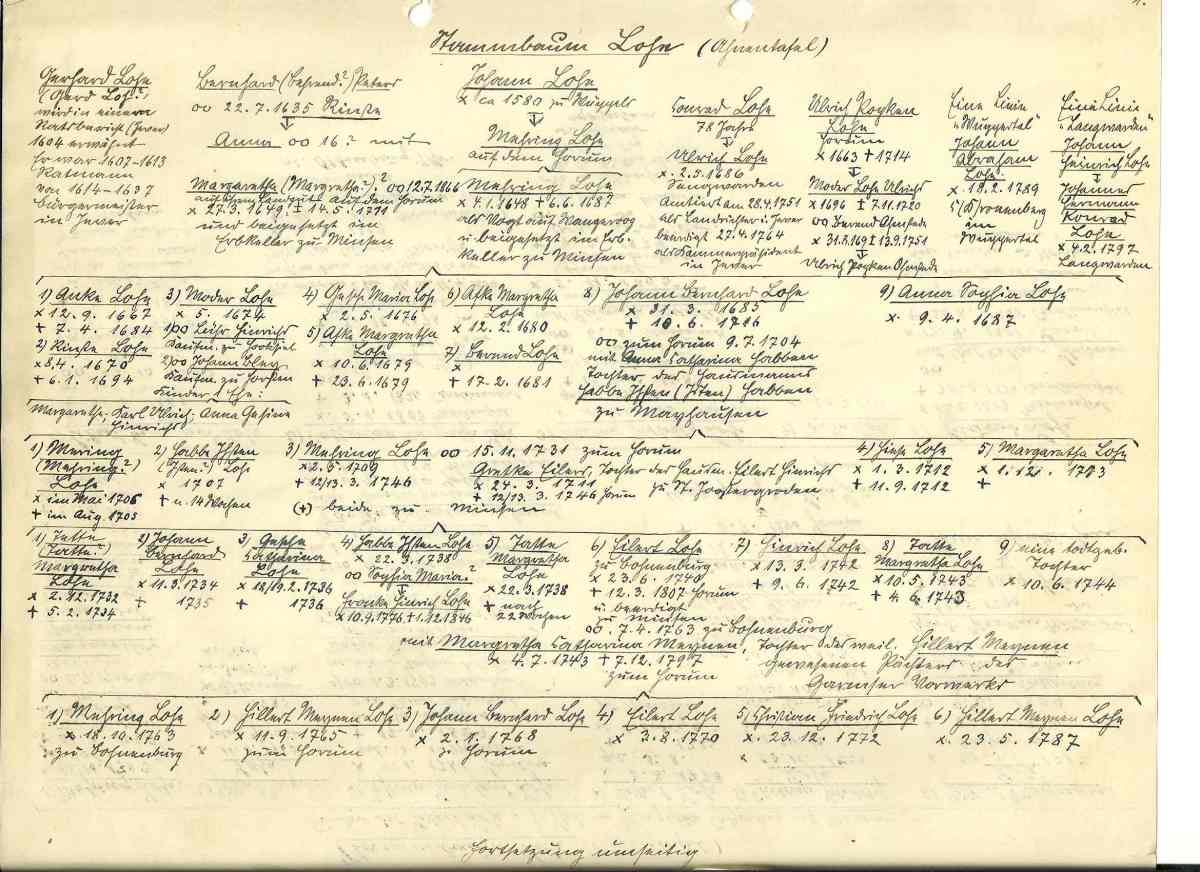 1.
Stammbaum Lohe (Ahnentafel)
Gerhard Lohe
(Gerd Loh?)
wird in einem
Ratsbericht (Jever)
1604 erwähnt
Er war 1607-1613
Ratmann
von 1614-1637
Bürgermeister
in Jever
Bernhard (Behrend?) Peters
oo 22.7.1635 Rinste
Anna oo 16? mit
Margaretha (Margrethe?)? oo 12.7.1666
auf dem Horum
x 27.3.1649 ± 14.5.1771
und beigesetzt im
Erbkeller zu Minsen
Johann Lohe
x ca 1580 zu Wuggels
Mehring Lohe
auf dem Horum
Mehring Lohe
x 4.1.1648 + 6.6.1687
als Vogt auf Wangeroog
u. beigesetzt im Erb-
keller zu Minsen
Conrad Lohe
78 Jahre
Ulrich Lohe
x. 2.5.1686
Sengwarden
Amtiert am 28.4.1751
als Landrichter i. Jever
beerdigt 27.4.1764
als Kammerpräsident
in Jever
Ulrich Popken
Lohe
Horum
x 1663 + 1714
Moder Lohe Ulrichs
x 1696 ± 7.11.1720
oo Berend Ohmstede
x 31.8.169 ± 13.9.1751
Ulrich Popken Ohmstede
Eine Linie
"Wuppertal"
Johann
Abraham
Lohe
x 18.2.1789
Cronenberg
im
Wuppertal
Eine Linie
"Langwarden"
Johann
Heinrich Lohe
Johannes
Hermann
Konrad
Lohe
x 4.2.1797
Langwarden
1) Anke Lohe
x 12.9.1667
+ 7.4.1684
2) Rinste Lohe
x 8.4. 1670
+ 6.1. 1694
3) Moder Lohe
x 5. 1674
1) oo Leihr Hinrichs
Kaufm. zu Hooksiel
2) oo Johann Bley
Kaufm. zu Horsten
Kinder 1 Ehe:
Margarethe; Karl Ulrich; Anna Gesine
Hinrichs
4) Gesche Maria Lohe
x 2.5.1676
5) Afke Margretha
Lohe
x 10.6.1679
+ 23.6.1679
6) Afke Margretha
Lohe
x 12.2.1680
7) Berend Lohe
x
+ 17.2.1681
8) Johann Bernhard Lohe
x 31.3.1685
+ 10.6.1716
oo zum Horum 9.7.1704
mit Anna Catharina Habben
Tochter des Hausmanns
Habbe Ihsten (Isten) Habben
zu Mayhausen
9) Anna Sophia Lohe
x. 9.4.1687
1) Mering
(Mehring?)
Lohe
x im Mai 1705
+ im Aug. 1705
2) Habbe Ihsten
(Isten?) Lohe
x 1707
+ n. 14 Wochen
3) Mehring Lohe oo 15.11.1731 zum Horum
x 2.5.1709
+ 12/13. 3. 1746
Gretke Eilers, Tochter des Hausm. Eilert Hinrichs
x 24.3.1711
+ 12/13. 3. 1746 Horum zu St. Joostergroden
(+) beide zu Minsen
4) Hiske Lohe
x 1.3.1712
+ 11.9.1712
5) Margaretha Lohe
x 1.12. 1713
+
1) Tette
(Tatte?)
Margretha
Lohe
x 2.12.1732
+ 5.2.1734
2) Johann
Bernhard
Lohe
x 11.3.1734
+ 1735
3) Gesche
Catharina
Lohe
x 18/19.2.1736
+ 1736
4) Habbe Ihsten Lohe
x 22.3.1738
oo Sophia Maria?
Frerike Hinrich Lohe
x 10.9.1776 + 1.12.1846
5) Tatte
Margretha
Lohe
x 22.3.1738
+ nach
22 Wochen
6) Eilert Lohe
zu Bohnenburg
x 23.6.1740
+ 12.3.1807 Horum
u. beerdigt
zu Minsen
oo. 7.4.1763 zu Bohnenburg
mit Margretha Catharina Meynen, Tochter des weil. Hillert Meynen
x 4.7.1743 + 7.12.1797 gewesenen Pächters des
zum Horum Garmser Vorwerks
7) Hinrich Lohe
x 13.3.1742
+ 9.6.1742
8) Tatte
Margretha Lohe
x 10.5.1743
+ 4.6.1743
9) eine todtgeb.
Tochter
x 10.6.1744
1) Mehring Lohe
x 18.10.1763
zu Bohnenburg
2) Hillert Meynen Lohe
x 11.9.1765
zum Horum
3) Johann Bernhard Lohe
x 2.1.1768
z. Horum
4) Eilert Lohe
x 3.8.1770
5) Christian Friedrich Lohe
x. 23.12.1772
6) Hillert Meynen Lohe
x. 23.5.1787
Fortsetzung umseitig